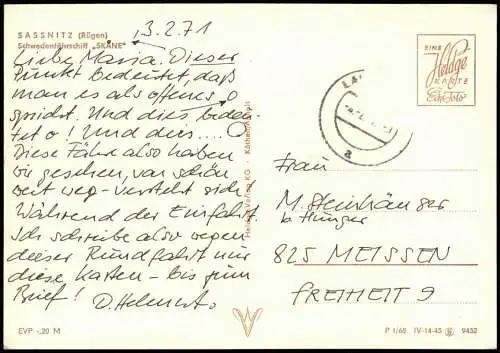 SASSNITZ (Rügen)
Schwedenfährschiff „SKÅNE“
13.2.71
Liebe Maria. Dieser
Punkt bedeutet, daß
man es als offenes o
spricht. Und dies
! Und dies....
Diese Fähre also haben
wir gesehen, von schön
weit weg - versteht sich
Während der Einfahrt.
Ich schreibe also wegen
dieser Rundfahrt nur
diese Karten - bis zum
Brief! D. Helmut
EINE
Heldge
KARTE
Echt Foto
Frau
M. Steinhäuser
b. Hunger
825 MEISSEN
FREIHEIT 9
Heldge-Verlag KG · Köthen/Anhalt
EVP -.20 M
P 1/68 IV-14-45 9452